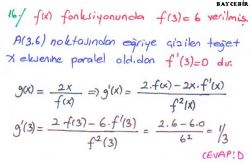 BAYCEBİR
16/ f(x) fonksiyonunda f(3)=6 verilmiş,
A(3,6) noktasından eğriye çizilen teğet
x eksenine paralel old.dan f'(3)=0 dır.
g(x) = 2x / f(x) ⇒ g'(x) = (2.f(x) - 2x.f'(x)) / f²(x)
g'(3) = (2.f(3) - 6.f'(3)) / f²(3) = (2.6 - 6.0) / 6² = 1/3
CEVAP:D